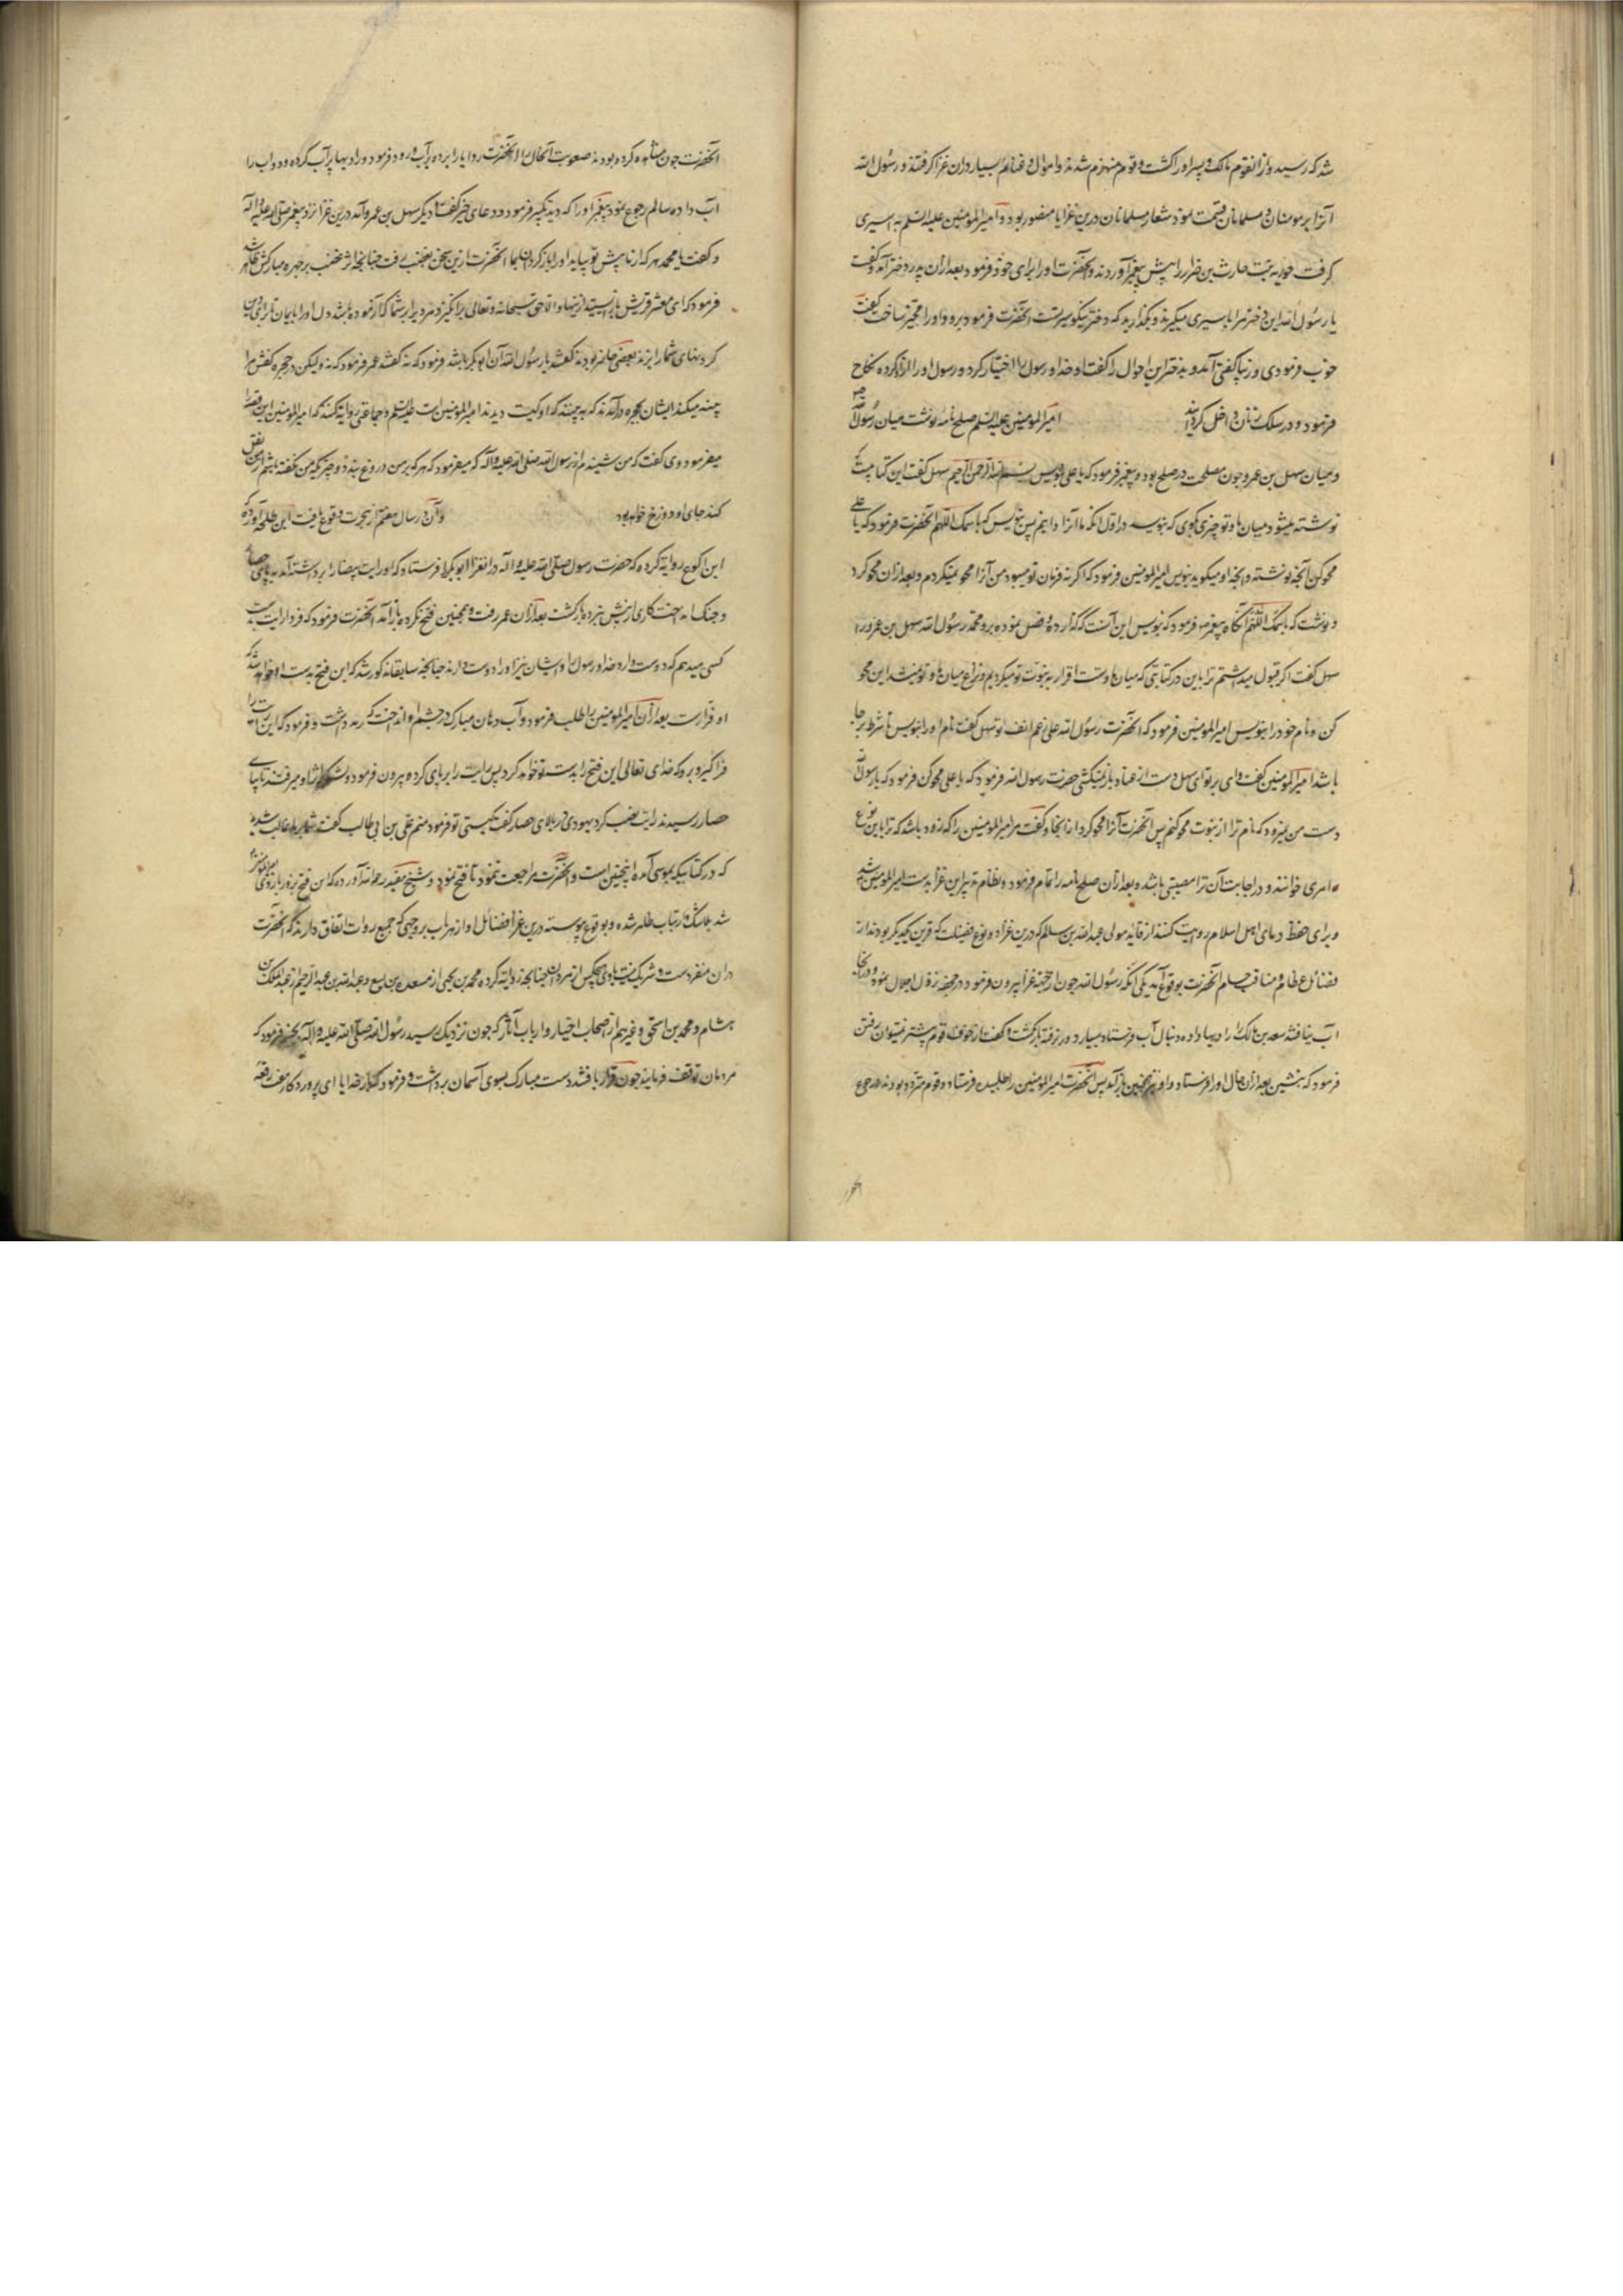 شد که رسید و از انقوم مالک و پسر اورا کشت و قوم منهزم شدند و اموال و غنائم بسیار دران غزا گرفتند و رسول الله
آنرا بر مومنان و مسلمانان قسمت نمود و شعار مسلمانان درین غزا یا منصور بود و امیرالمومنین علیه السلم به اسیری
گرفت جویریه بنت حارث بن ضرار را پیش پیغمبر آوردند و آنحضرت اورا برای خود فرمود بعد ازان پدر دختر آمد و گفت
یا رسول الله این دختر مرا باسیری میگیرند و بگذارید که دختر نیکو سیرتست آنحضرت فرمود برو و اورا مخیر ساخت گفت
خوب فرمودی و زیبا گفتی آمد و بدختر این احوال را گفت او خدا و رسول را اختیار کرد و رسول اورا آزاد کرده نکاح
فرمود و در سلک زنان داخل گردانید امیرالمومنین علیه السلم صلح نامه نوشت میان رسول الله
و میان سهل بن عمرو چون مصلحت در صلح بود و پیغمبر فرمود که یا علی بنویس بسم الله الرحمن الرحیم سهل گفت این کتابیست که
نوشته میشود میان ما و تو چیزی گوی که بنویسد در اول آنکه ما آنرا دانیم پس بنویس که باسمک اللهم آنحضرت فرمود که یا علی
محو کن آنچه نوشته و آنچه او میگوید بنویس امیرالمومنین فرمود که اگر نه فرمان تو میبود من آنرا محو نمیکردم و بعد ازان محو کرد
و نوشت که باسمک اللهم آنگاه پیغمبر فرمود که بنویس این آنست که گذارده و فصل نموده برو محمد رسول الله سهل بن عمرو را
سهل گفت اگر قبول میداشتم ترا باین در کتابتی که میان ماوتست اقرار به نبوت تو میکردیم و نزاع میان ما و تو نمیشد این محو
کن و نام خود را بنویس امیرالمومنین فرمود که آنحضرت رسول الله علی رغم انف تو سهل گفت نام اورا بنویس تا شرط بر جا
باشد امیرالمومنین گفت وای بر تو ای سهل دست از عناد باز نمیکشی حضرت رسول الله فرمود که یا علی محو کن فرمود که یا رسول الله
دست من نمیرود که نام ترا از نبوت محو کنم پس آنحضرت آنرا محو کرد از انجا و گفت مر امیرالمومنین را که زود باشد که ترا باین نوع
امری خوانند و در اجابت آن ترا مصیبتی باشد و بعد ازان صلح نامه را تمام فرمود و نظام تدبیر این غزا بدست امیرالمومنین شد
و برای حفظ دمای اهل اسلام روایت کنند از فاید مولی عبد الله بن سالم که درین غزا دو نوع فضیلت که قرین یکدیگر بودند از
فضائل عظام و مناقب جسام آنحضرت بوقوع آمد یکی آنکه رسول الله چون از جهة غزا بیرون فرمود در جحفه نزول اجلال نمود و در انجا
آب نیافتند سعد بن مالک را راویها داده دنبال آب فرستاد بسیار دور نرفته بازگشت و گفت از خوف قوم پیشتر نمیتوان رفتن
فرمود که بنشین بعد ازان مال اورا فرستاد و او نیز همچنین باز آمد پس آنحضرت امیرالمومنین را طلبیده فرستاد و قوم متردد بودند در رجوع
آنحضرت چون مشاهده کرده بودند صعوبت آنحال را آنحضرت روایا را برده بر آب ورود فرمود و راویها پر آب کرده و دواب را
آب داده سالم رجوع نمود پیغمبر اورا که دید تکبیر فرمود و دعای خیر گفت دیگر سهل بن عمرو آمد درین غزا نزد پیغمبر صلی الله علیه و اله
و گفت یا محمد هر که از ما پیش تو بیاید اورا باز گردان بما آنحضرت ازین سخن بغضب رفت چنانچه اثر غضب بر چهره مبارکش ظاهر شد
فرمود که ای معشر قریش باز ایستید ازینها و الا حق سبحانه و تعالی برانگیزد مردیرا بر شما که آزموده باشد دل اورا بایمان تا برای دین
گردنهای شمارا بزند بعضی حاضر بودند گفتند یا رسول الله آن ابوبکر باشد فرمود که نه گفتند عمر فرمود که نه ولیکن در حجره کفش مرا
پینه میکند ایشان بحجره درآمدند که به بینند که او کیست دیدند امیرالمومنین است علیه السلم و جماعتی روایة کنند که امیرالمومنین این قصه را
میفرمود و می گفت که من شنیدم از رسول الله صلی الله علیه و آله که میفرمود که هر که بر من دروغ بندد و چیزیکه من نگفته باشم از من نقل
کند جای او دوزخ خواهد بود و آن در سال هفتم از هجرت وقوع یافت ابن طلحه آورده که
ابن اکوع روایة کرده که حضرت رسول صلی الله علیه و اله در انغزا ابوبکر را فرستاد که او رایت بیضا را برداشته آمد به پای حصار
و جنک کرد کاری از پیش نبرده بازگشت بعد ازان عمر رفت و همچنین فتح نکرده باز آمد آنحضرت فرمود که فردا رایت بدست
کسی میدهم که دوست دارد خدا و رسول او ایشان نیز اورا دوست دارند چنانچه سابقا مذکور شد که این فتح بدست او خواهد شد که
او فرارست بعد ازان امیرالمومنین را طلب فرمود و آب دهان مبارک در چشم او انداخت که رمد داشت و فرمود که این رایت را
فراگیر و برو که خدای تعالی این فتح را بدست تو خواهد کرد پس رایت را بر پای کرده بیرون فرمود و لشکر از پی او میرفتند تا بپای
حصار رسیدند رایت نصب کرد یهودی از بالای حصار گفت کیستی تو فرمود منم علی بن ابی طالب گفت شما بر ما غالب شدید
که در کتابیکه بموسی آمده اینچنین است و آنحضرت مراجعت ننمود تا فتح نمود و شیخ مفید رحمه الله آورده که این فتح بزور بازوی امیرالمومنین
شد بلا شک و ارتیاب ظاهر شده و بوقوع پیوسته درین غزا فضائل او از هر باب بر وجهی که جمیع روات اتفاق دارند که آنحضرت
دران منفردست و شریک نیست با وی هیچکس از مردان چنانچه روایة کرده محمد بن یحیی از مسعدة بن یسع و عبد الله بن عبد الرحیم از عبد الملک بن
هشام و محمد بن اسحق و غیرهم از اصحاب اخیار و ارباب آثار که چون نزدیک رسید رسول الله صلی الله علیه و اله بخیبر فرمود که
مردمان توقف فرمایند چون قرار یافتند دست مبارک بسوی آسمان برداشت و فرمود که بار خدایا ای پروردگار هفت